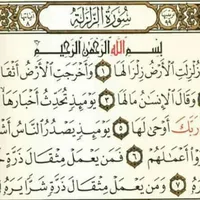 سُورَةُ الزَّلْزَلَةِ
بِسْمِ اللَّهِ الرَّحْمَٰنِ الرَّحِيمِ
زُلْزِلَتِ الْأَرْضُ زِلْزَالَهَا ١ وَأَخْرَجَتِ الْأَرْضُ أَثْقَا
وَقَالَ الْإِنسَٰنُ مَا لَهَا ٣ يَوْمَئِذٍ تُحَدِّثُ أَخْبَارَهَا
رَبَّكَ أَوْحَىٰ لَهَا ٥ يَوْمَئِذٍ يَصْدُرُ النَّاسُ أَشْ
وْا أَعْمَٰلَهُمْ ٦ فَمَن يَعْمَلْ مِثْقَالَ ذَرَّةٍ خَ
٧ وَمَن يَعْمَلْ مِثْقَالَ ذَرَّةٍ شَرًّا يَرَهُ